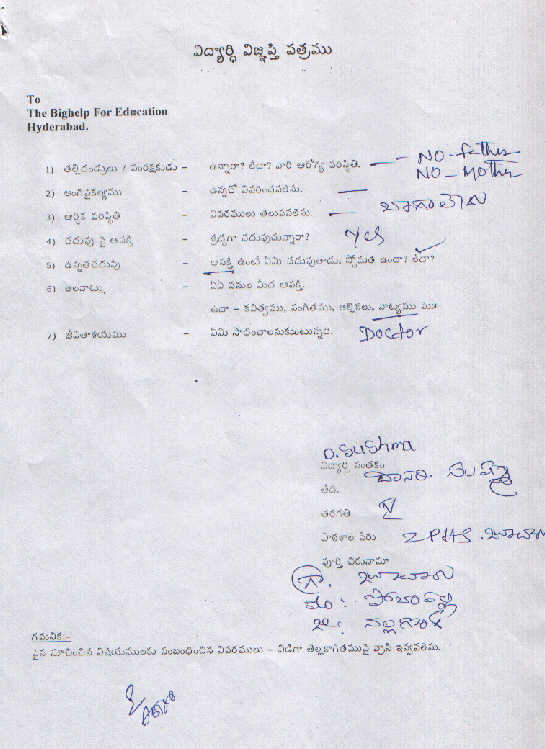 విద్యార్థి విజ్ఞప్తి పత్రము
To
The Bighelp For Education
Hyderabad.
1) తల్లిదండ్రులు / సంరక్షకుడు – ఉన్నారా? లేదా? వారి ఆరోగ్య పరిస్థితి. – NO-father
NO-Mother
2) అంగవైకల్యము – ఉన్నచో వివరించవలెను.
3) ఆర్థిక పరిస్థితి – వివరములు తెలుపవలెను. బాగా లేదు
4) చదువు పై ఆసక్తి – శ్రద్ధగా చదువుచున్నారా? Yes
5) ఉన్నతచదువు – ఆసక్తి ఉంటే ఏమి చదువుతాడు. స్తోమత ఉందా? లేదా?
6) అలవాట్లు – ఏఏ పనుల మీద ఆసక్తి.
ఉదా – కవిత్వము, సంగీతము, ఆటలు, నాట్యము
7) జీవితాశయము – ఏమి సాధించాలనుకుంటున్నది. Doctor
D. Sushma
విద్యార్థి సంతకం
తేది.
తరగతి
పాఠశాల పేరు ZPHS.
పూర్తి చిరునామా
గ్రా.
మం:
జి: నల్లగొండ
గమనిక:-
పైన సూచించిన విషయములకు సంబంధించిన వివరములు – విడిగా తెల్లకాగితముపై వ్రాసి ఇవ్వవలెను.